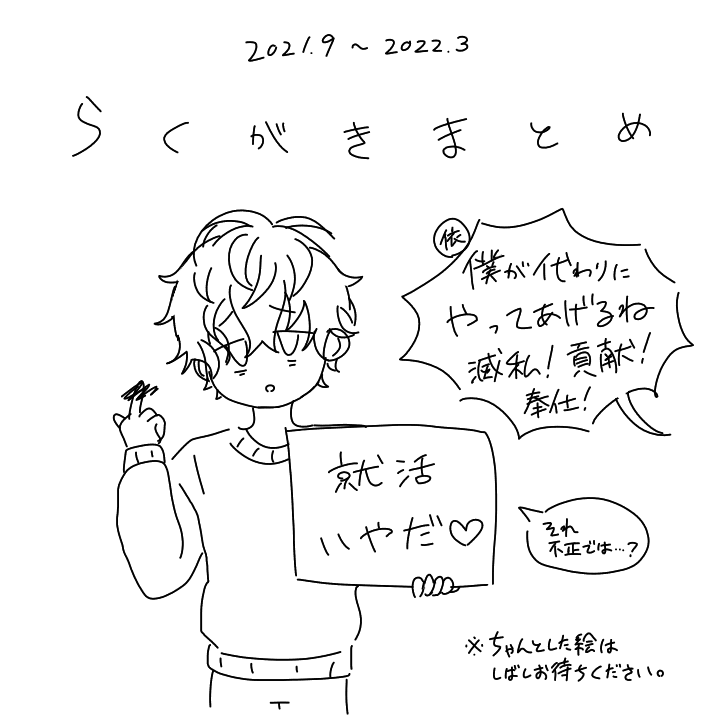 2021.9 ~ 2022.3
らくがきまとめ
依
僕が代わりに
やってあげるね
滅私!貢献!
奉仕!
就活
いやだ♡
それ
不正では…?
※ちゃんとした絵は
しばしお待ちください。